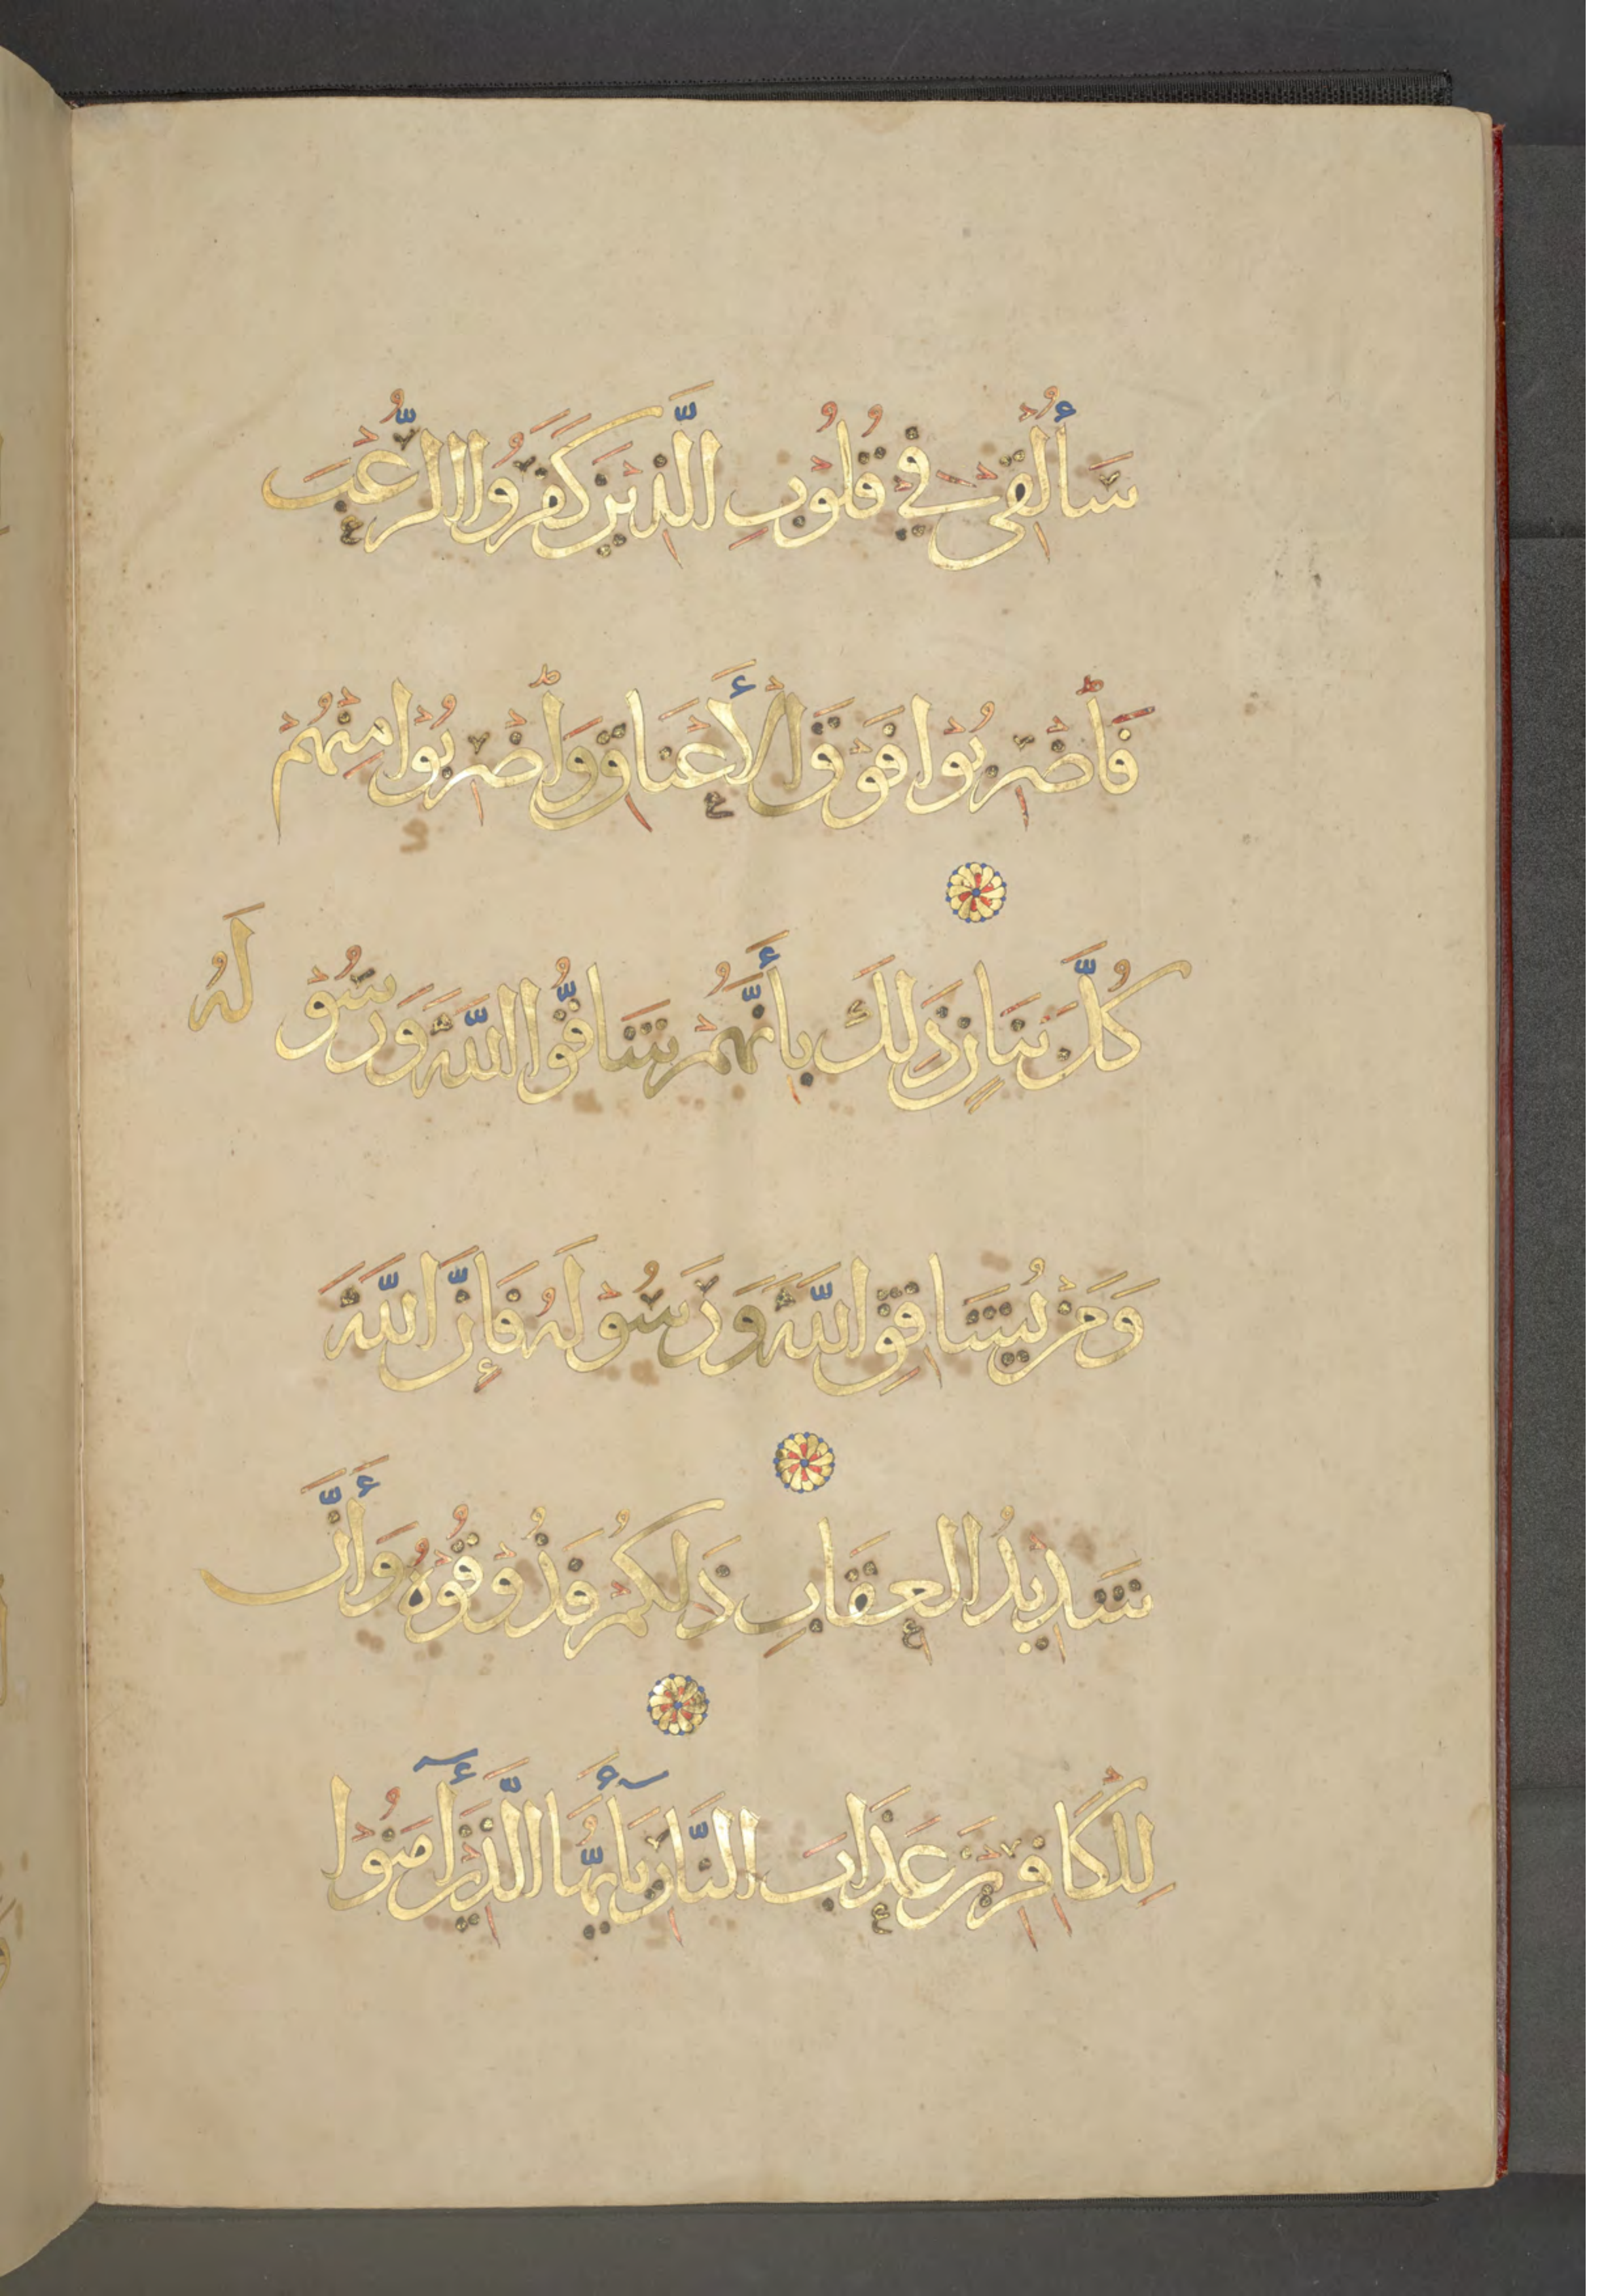 سَأُلْقِيْ فِيْ قُلُوْبِ الَّذِيْنَ كَفَرُوا الرُّعْبَ
فَٱضْرِبُوْا فَوْقَ الْأَعْنَاقِ وَٱضْرِبُوْا مِنْهُمْ
كُلَّ بَنَانٍ ذَلِكَ بِأَنَّهُمْ شَاقُّوا اللَّهَ وَرَسُوْلَهُ
وَمَنْ يُشَاقِقِ اللَّهَ وَرَسُوْلَهُ فَإِنَّ اللَّهَ
شَدِيْدُ الْعِقَابِ ذَلِكُمْ فَذُوْقُوْهُ وَأَنَّ
لِلْكَافِرِيْنَ عَذَابَ النَّارِ يَأَيُّهَا الَّذِيْنَ أٓمَنُوْا